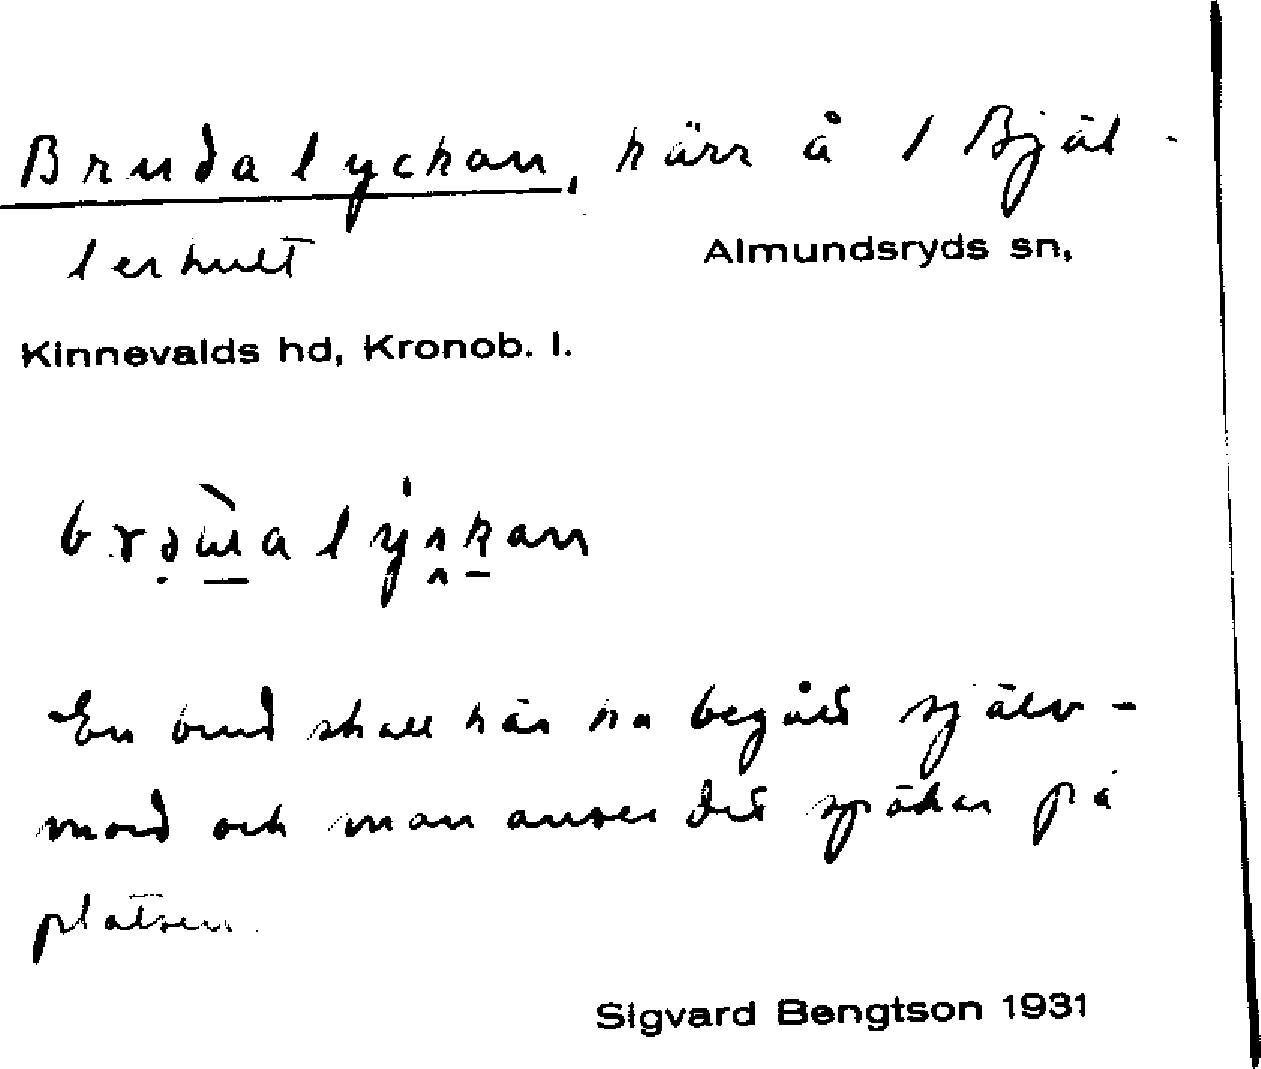 Brudalyckan, kärr å 1 Bjäl-
lerhult
Almundsryds sn,
Kinnevalds hd, Kronob. l.
En brud skall här ha begått själv-
mord och man anser det spökar på
platsen.
Sigvard Bengtson 1931